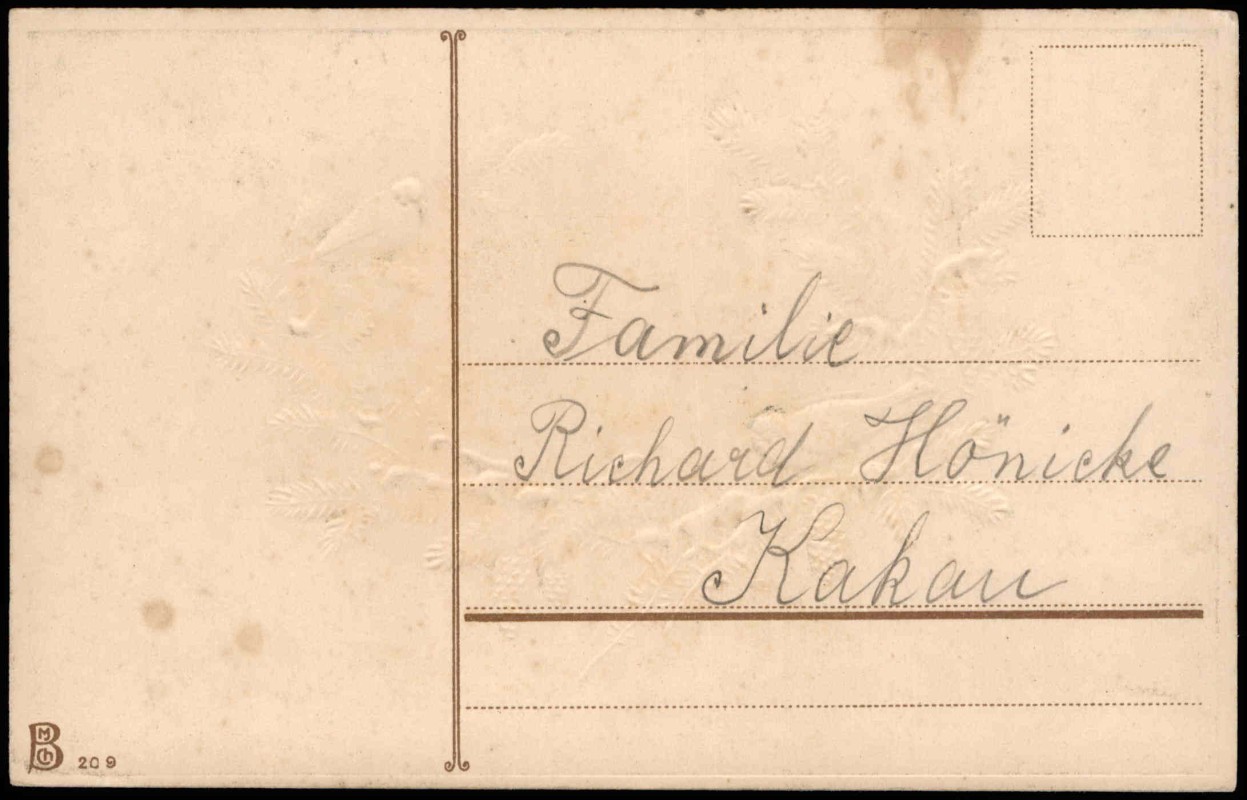 Familie
Richard Hönicke
Kakau
BMCh 209